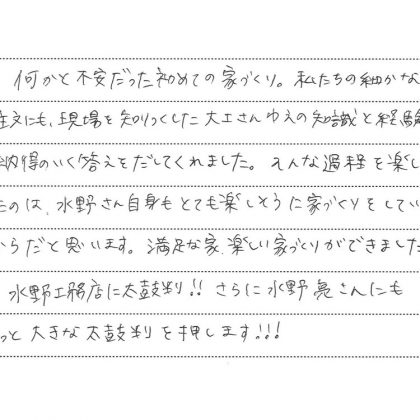 何かと不安だった初めての家づくり。私たちの細かな
注文にも、現場を知りつくした大工さんゆえの知識と経験
納得のいく答えをだしてくれました。そんな過程を楽し
ものは、水野さん自身もとても楽しそうに家づくりをしてい
からだと思います。満足な家、楽しい家づくりができました
水野工務店に太鼓判!! さらに水野亮さんにも
っと大きな太鼓判を押します!!!